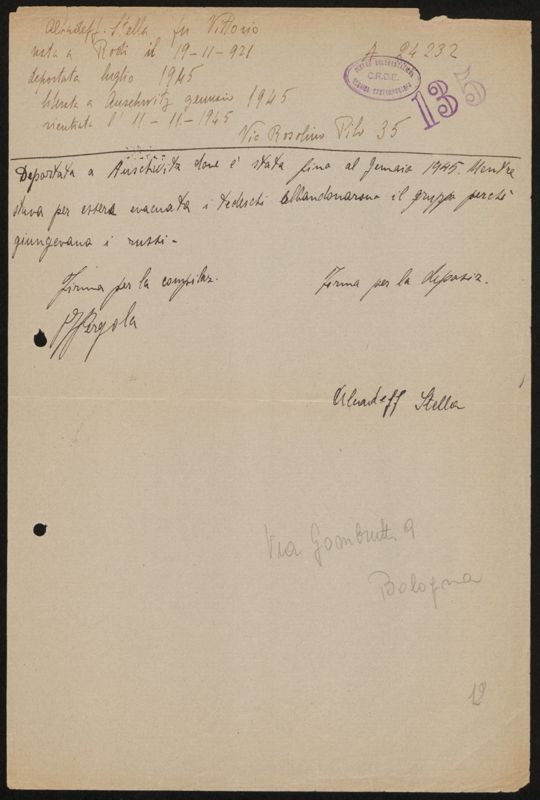 Alhadeff Stella fu Vittorio
nata a Rodi il 19-11-921 A 24232
deportata luglio 1945
C.R.D.E.
135
liberata a Auschwitz gennaio 1945
rientrata l' 11-11-1945
Via Rosolino Pilo 35
Deportata a Auschwitz dove è stata fino al Jennaio 1945. Mentre
stava per essere evacuata i tedeschi abbandonarono il gruppo perchè
giungevano i russi.-
Firma per la compilaz. Firma per la deposiz.
Pergola
Alhadeff Stella
Via Gombruti 9
Bologna
12